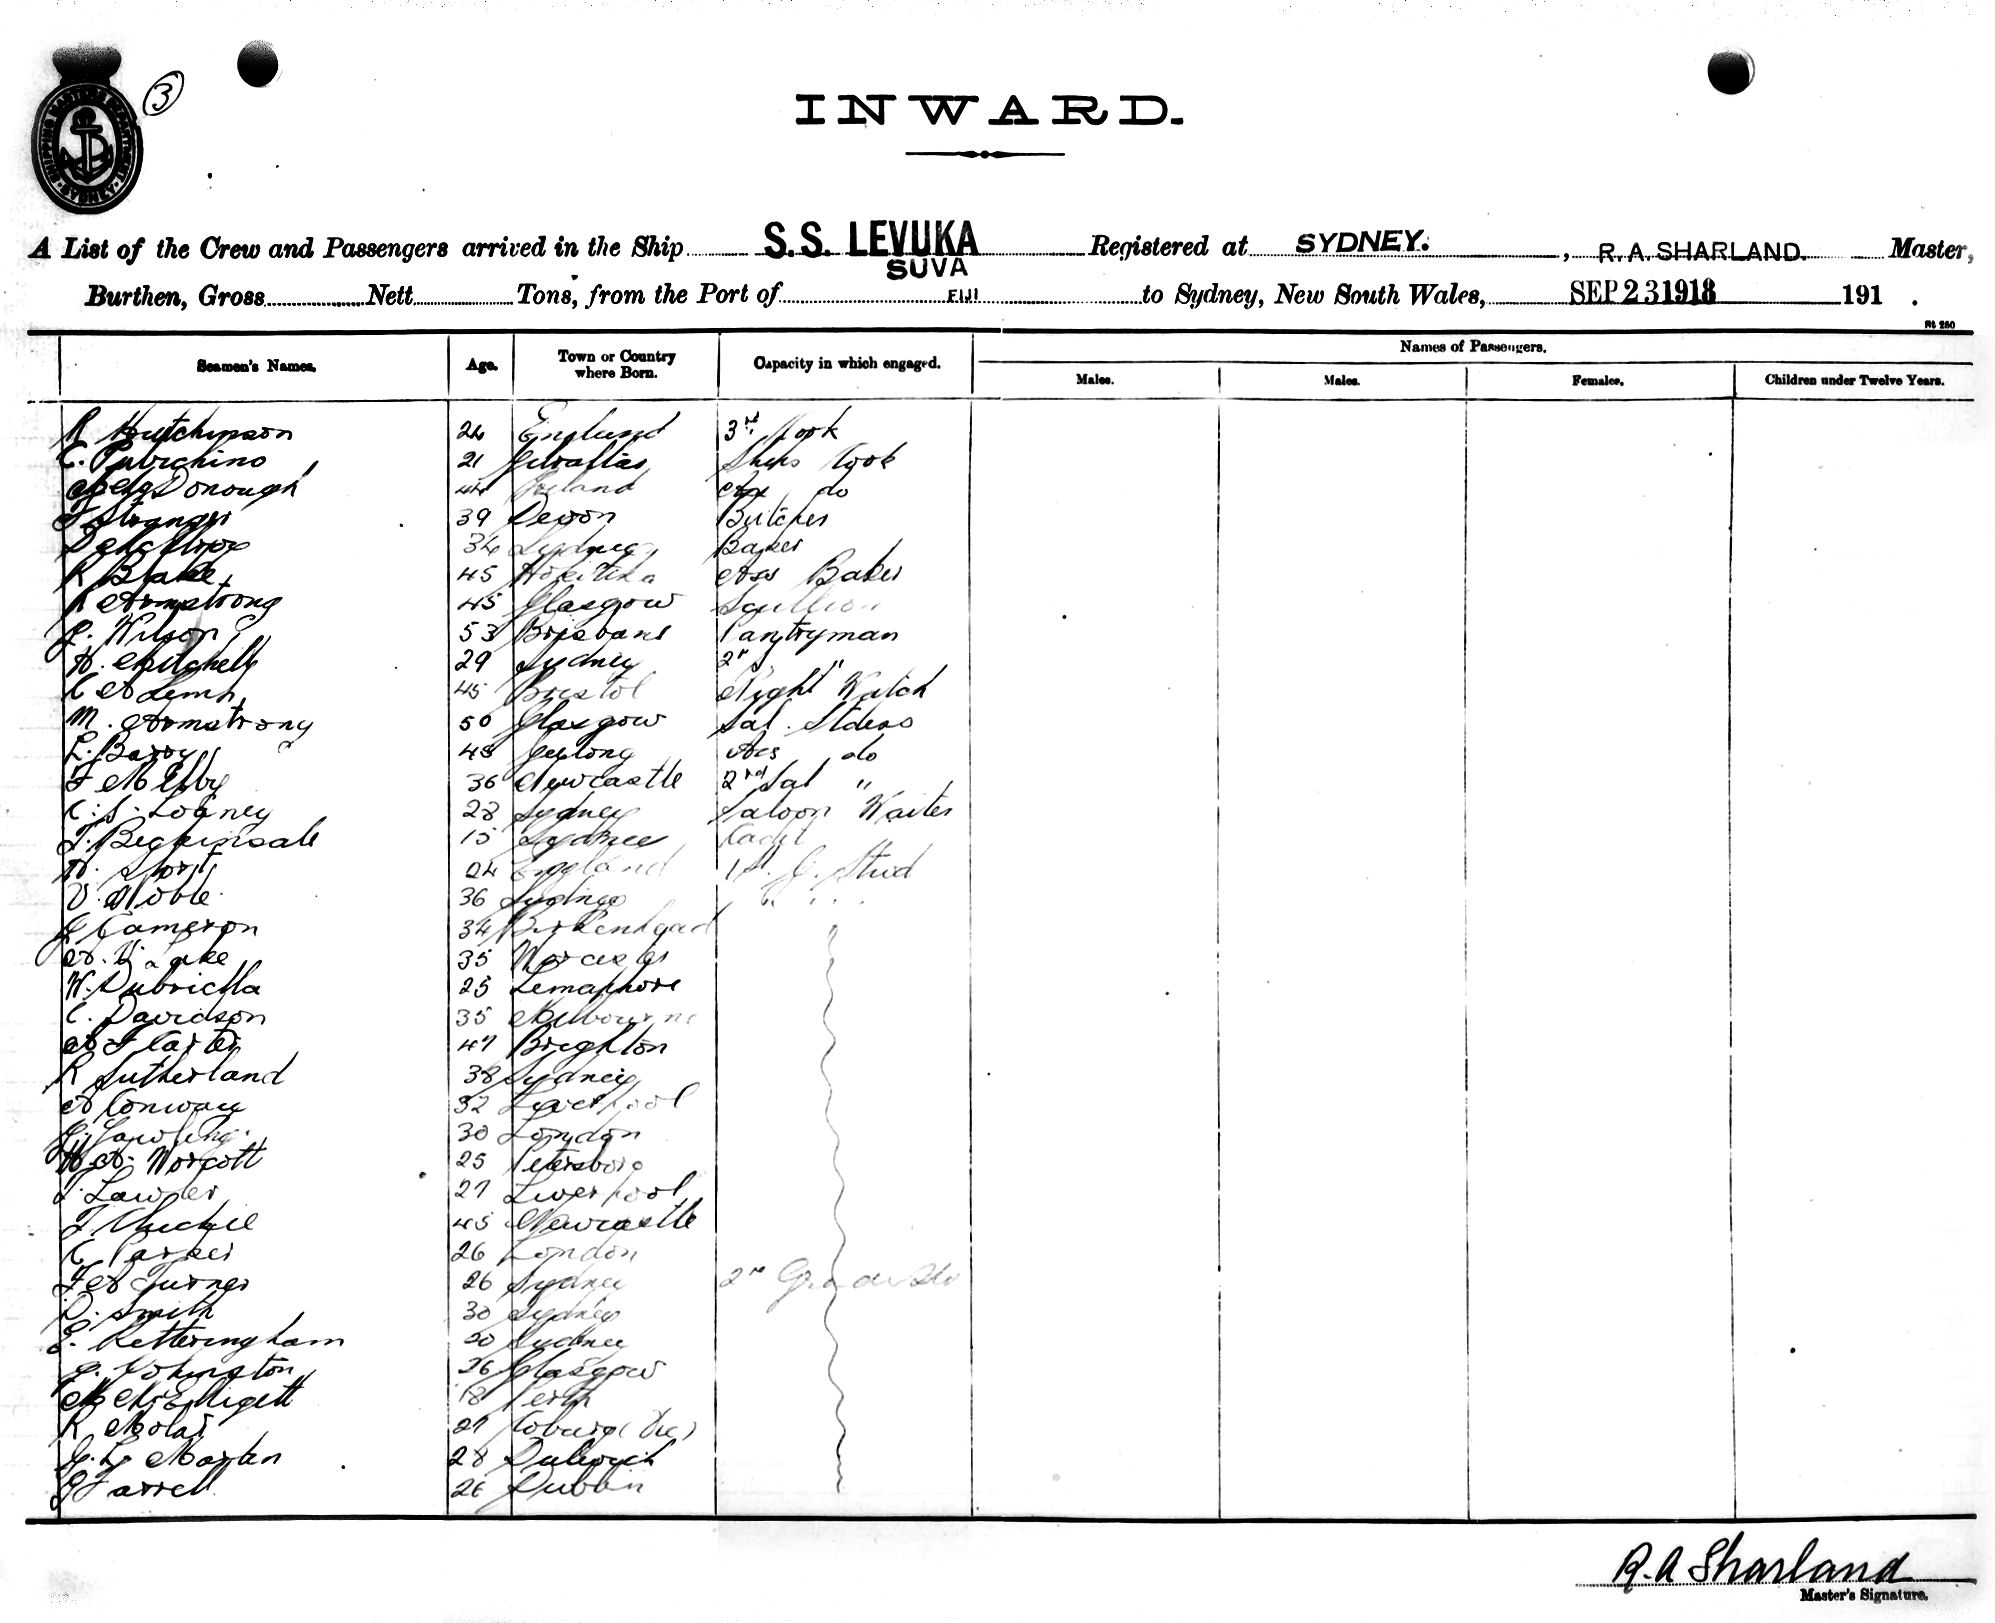 SHIPPING MASTERS DEPARTMENT SYDNEY
3
INWARD.
A List of the Crew and Passengers arrived in the Ship S.S. LEVUKA Registered at SYDNEY. , R. A. SHARLAND. Master,
SUVA
Burthen, Gross Nett Tons, from the Port of FIJI to Sydney, New South Wales, SEP 23 1918 191 .
Seamen's Names. Age. Town or Country where Born. Capacity in which engaged. Names of Passengers.
Males. Males. Females. Children under Twelve Years.
R Hutchinson 24 England 3rd Cook
C. 21 Gibraltar Ships Cook
McDonough 44 Ireland Ass do
J Stranger 39 Devon Butcher
34 Sydney Baker
R Blake 45 Hokitika Ass Baker
R Armstrong 45 Glasgow Scullion
J. Wilson 53 Brisbane Pantryman
H. Mitchell 29 Sydney 2nd "
C A 45 Bristol Night Watch
M. Armstrong 50 Glasgow Sal. Stdess
L. Barry 48 Geelong Ass do
F Melby 36 Newcastle 2nd Sal "
C. S. Looney 28 Sydney Saloon Waiter
J. Beckinsale 15 Sydney Cadet
H. Short 24 England 1st G. Stwd
V. Noble 36 Sydney "
J Cameron 34 Birkenhead
A. V. Lake 35 Worcester
W. 25 Semaphore
C. Davidson 35 Melbourne
A F Carter 47 Brighton
R Sutherland 38 Sydney
A Conway 32 Liverpool
30 London
H A. Worcott 25 Petersboro
J. Lawler 27 Liverpool
J 45 Newcastle
C Parker 26 London
F A Turner 26 Sydney 2nd Grade Std
D. Smith 30 Sydney
E. Ketteringham 20 Sydney
J. Johnston 26 Glasgow
M McElligett 18 Perth
R 27 Coburg (Vic)
G. L. Martin 28 Dulwich
J Farrell 26 Dublin
R. A Sharland
Master's Signature.